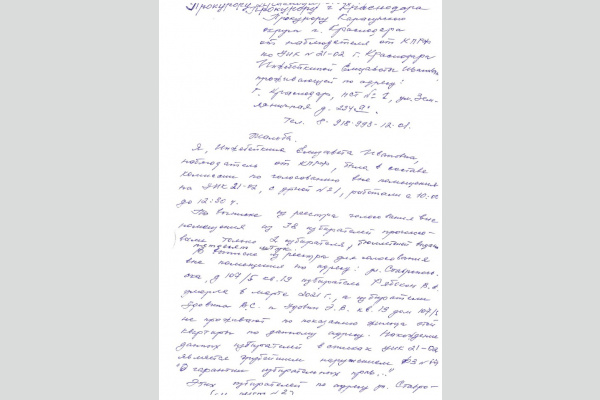 Прокурору г. Краснодара
Прокурору Карасунского
округа г. Краснодара
от наблюдателя от КПРФ
на УИК № 21-02 г. Краснодара
Елизаветы
проживающей по адресу:
г. Краснодар, НСТ № 1, ул. Зем-
ляничная д. 234
Тел. 8-918-993-12-01.
Жалоба.
Я, Елизавета Ивановна,
наблюдатель от КПРФ, была в составе
комиссии по голосованию вне помещения
на УИК 21-02, с урной №1, работали с 10.00
до 12:30 ч.
По выписке из реестра голосования вне
помещения из избирателей проголосо-
вали только 2 избирателя,
В выписке из реестра для голосования
вне помещения по адресу: ул. Ставрополь-
ская, д 107/5 кв. 13 избиратель В.В.
умерла в марте 2021 г., а избиратели
В.С. и Э.В. кв. 19 дом 107/5
не проживают по показанию жильца этой
квартиры по данному адресу. Нахождение
данных избирателей в списках УИК 21-02
является грубейшим нарушением ФЗ № 67
"О гарантии избирательных прав..."
Этих избирателей по адресу ул. Ставро-
лист №2